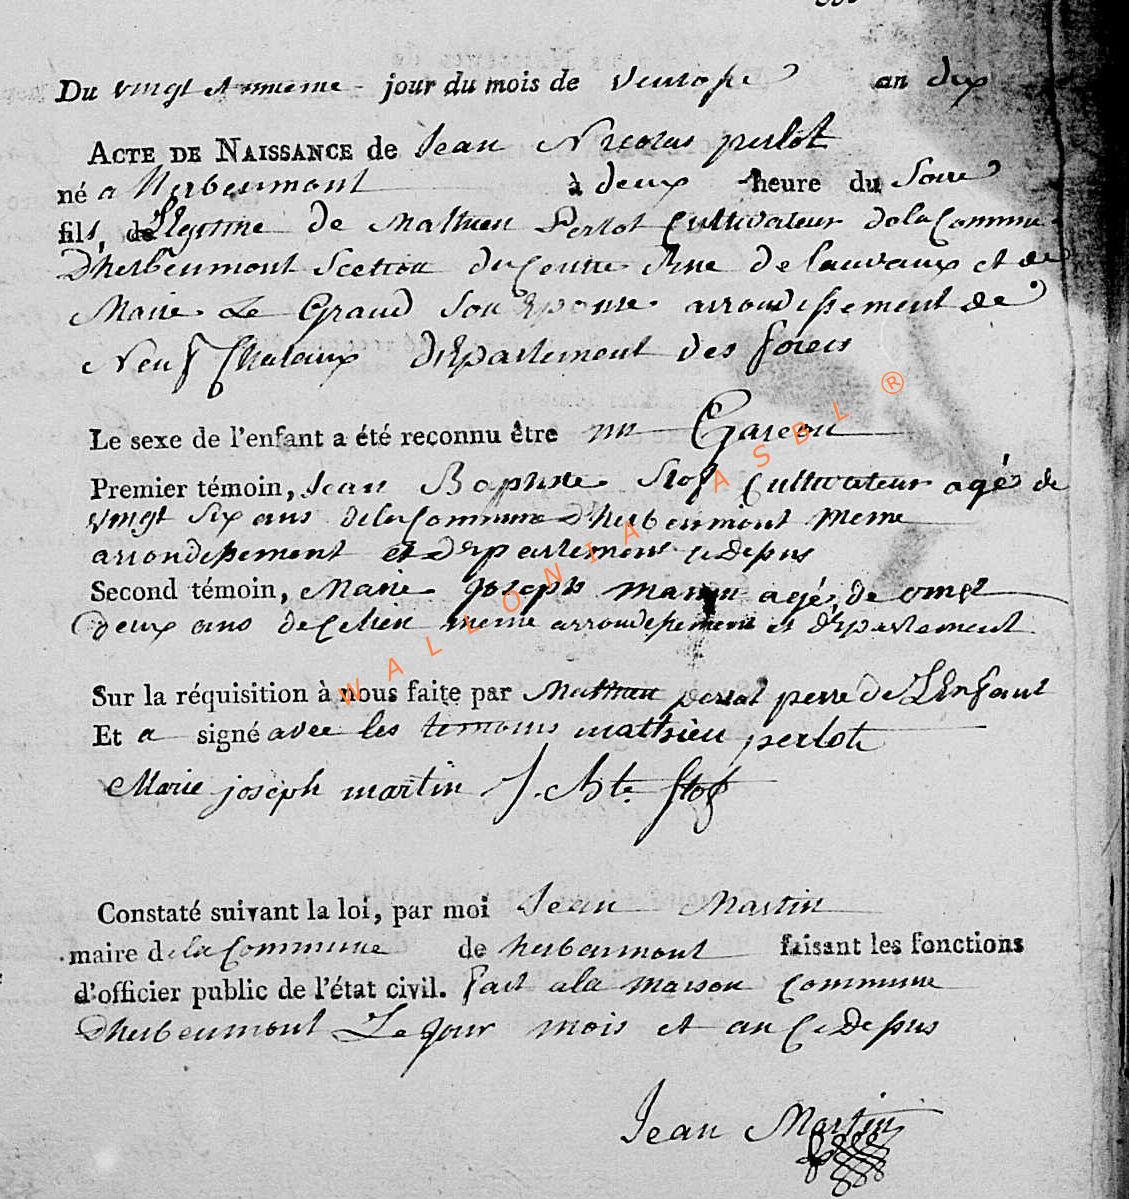 Du vingt et unieme jour du mois de Ventose an dix
ACTE DE NAISSANCE de Jean Nicolas perlot
né a Herbeumont à deux heure du Soire
fils, de Legitime de Mathieu Perlot Cultivateur dela Commune
Dherbeumont Section du Centre de et de
Marie Le Grand Son Epouse arrondissement de
Neuf Chateaux Département des forets
Le sexe de l'enfant a été reconnu être un Garcon
Premier témoin, Jean Baptiste Stof Cultivateur agé de
vingt Six ans dela Commune Dherbeumont meme
arrondissement et Département ci depus
Second témoin, Marie Joseph Martin agé de vingt
deux ans de meme arrondissement et département
Sur la réquisition à nous faite par Mathieu perlot perre de L'Enfant
Et a signé avec les temoins mathieu perlot
Marie joseph martin J. Bte Stof
Constaté suivant la loi, par moi Jean Martin
maire dela Commune de herbeumont faisant les fonctions
d'officier public de l'état civil. fait ala maison Commune
Dherbeumont Le jour mois et an Ci Depus
Jean Martin
WALLONIA ASBL ®